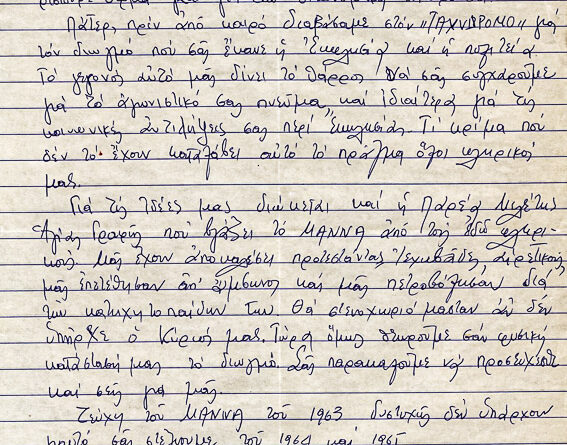 Πάτερ, πρίν ἀπό καιρό διαβάσαμε στόν "ΤΑΧΥΔΡΟΜΟ" γιά
τόν διωγμό πού σᾶς ἔκανε ἡ Ἐκκλησία καί ἡ πολιτεία
Τό γεγονός αὐτό μᾶς δίνει τό θάρρος νά σᾶς συγχαροῦμε
γιά τό ἀγωνιστικό σας πνεῦμα καί ἰδιαίτερα γιά τίς
κοινωνικές ἀντιλήψεις σας περί Ἐκκλησίας. Τί κρίμα πού
δέν τό ἔχουν καταλάβει αὐτό τό πρᾶγμα ὅλοι οἱ κληρικοί
μας.
Γιά τίς ἰδέες μας διώκεται καί ἡ Παρέα Μελέτης
Ἁγίας Γραφῆς πού βγάζει τό ΜΑΝΝΑ ἀπό τούς ἐδῶ κληρι-
κούς. Μᾶς ἔχουν ἀποκαλέσει προτεστάντας, ἰεχωβάδες, αἱρετικούς
μᾶς ἐπετέθησαν ἀπ' ἄμβωνος καί μᾶς πετροβόλησαν διά
τῶν κατηχητοπαίδων των. Θά στενοχωριόμασταν ἄν δέν
ὑπῆρχε ὁ Κύριός μας. Τώρα ὅμως θεωροῦμε σάν φυσική
κατάστασή μας τό διωγμό. Σᾶς παρακαλοῦμε νά προσεύχεσθε
καί σεῖς γιά μᾶς.
Τεύχη τοῦ ΜΑΝΝΑ τοῦ 1963 δυστυχῶς δέν ὑπάρχουν
σᾶς στέλνουμε τοῦ 1964 καί 1965